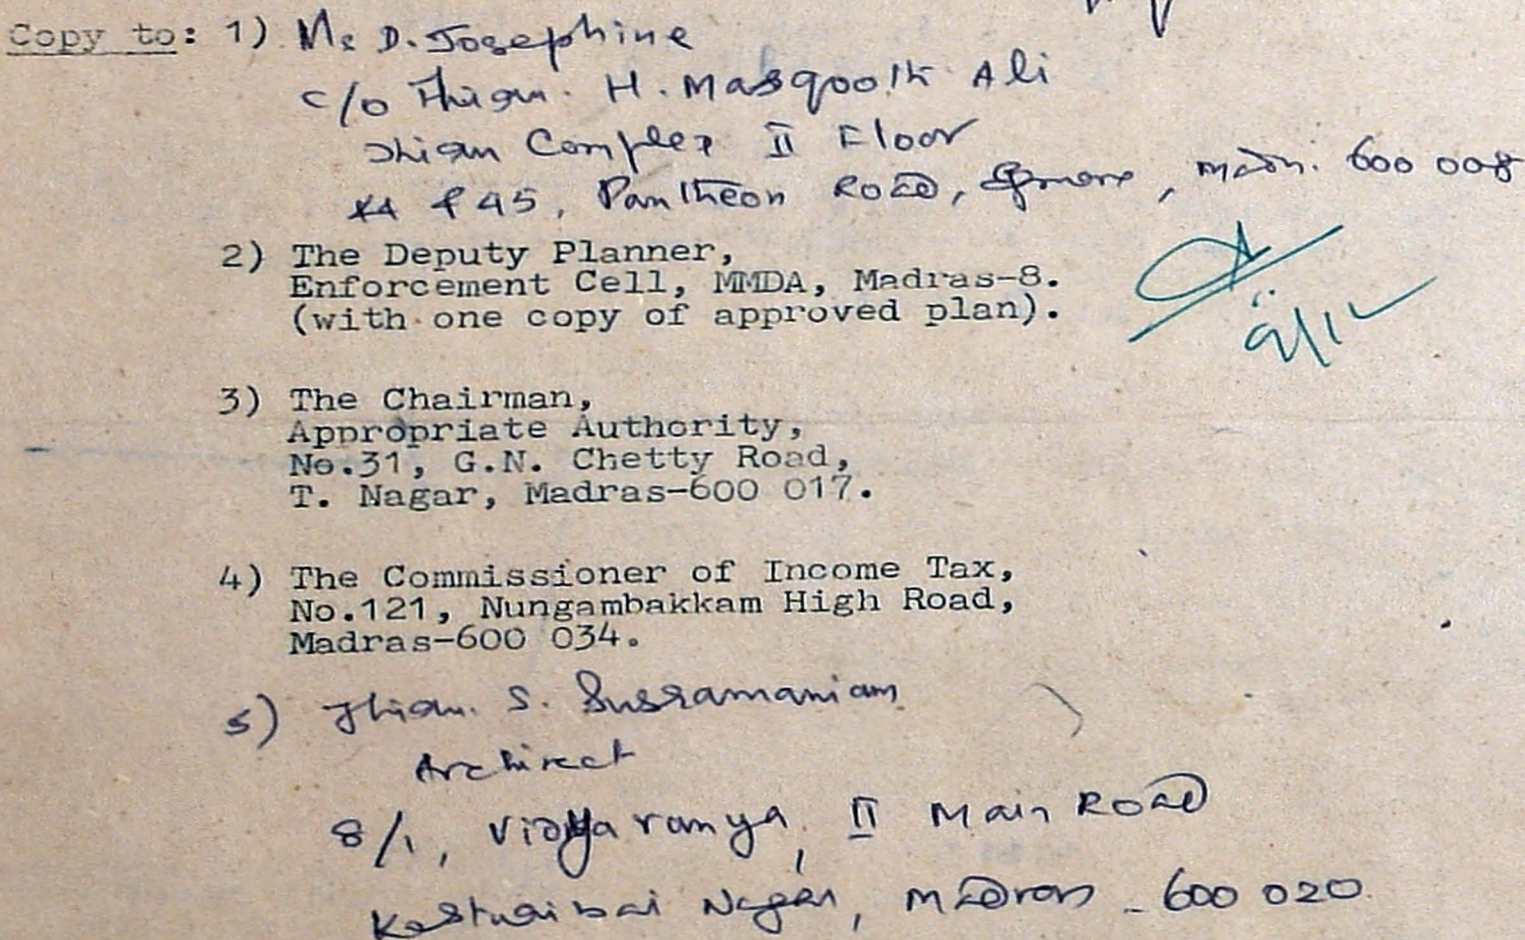 Copy to: 1) Ms D. Josephine
c/o Thiru. H. Masqooth Ali
Complex II Floor
44 & 45, Pantheon Road, Egmore, Madras. 600 008
2) The Deputy Planner,
Enforcement Cell, MMDA, Madras-8.
(with one copy of approved plan).
9/12
3) The Chairman,
Appropriate Authority,
No.31, G.N. Chetty Road,
T. Nagar, Madras-600 017.
4) The Commissioner of Income Tax,
No.121, Nungambakkam High Road,
Madras-600 034.
5) Thiru. S. Subramaniam
Architect
8/1, Vidyaramya, II Main Road
Kasturibai Nagar, Madras - 600 020.